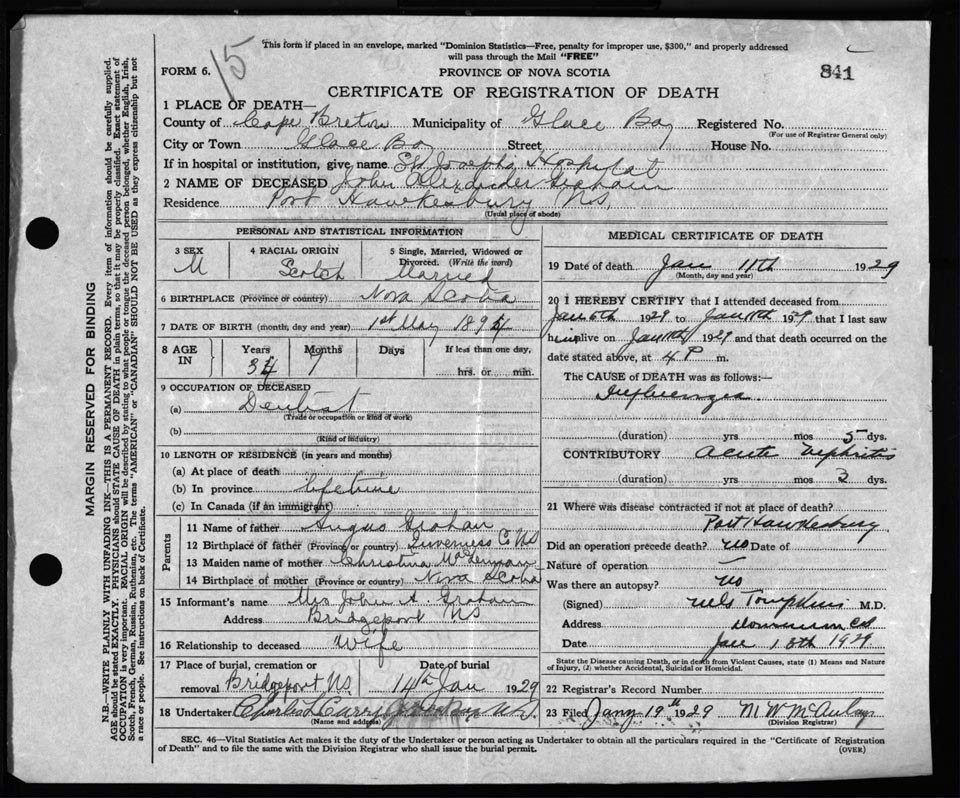 15
This form if placed in an envelope, marked "Dominion Statistics—Free, penalty for improper use, $300," and properly addressed
will pass through the Mail "FREE"
FORM 6.
PROVINCE OF NOVA SCOTIA
841
CERTIFICATE OF REGISTRATION OF DEATH
1 PLACE OF DEATH—
County of Cape Breton Municipality of Glace Bay Registered No.
(For use of Registrar General only)
City or Town Glace Bay Street House No.
If in hospital or institution, give name St Josephs Hospital
2 NAME OF DECEASED John Alexander Graham
Residence Port Hawkesbury N.S.
(Usual place of abode)
PERSONAL AND STATISTICAL INFORMATION
3 SEX M
4 RACIAL ORIGIN Scotch
5 Single, Married, Widowed or Divorced. (Write the word) Married
6 BIRTHPLACE (Province or country) Nova Scotia
7 DATE OF BIRTH (month, day and year) 1st May 1894
8 AGE IN Years 34 Months 7 Days If less than one day, hrs. or min.
9 OCCUPATION OF DECEASED
(a) Dentist
(Trade or occupation or kind of work)
(b)
(Kind of industry)
10 LENGTH OF RESIDENCE (in years and months)
(a) At place of death
(b) In province lifetime
(c) In Canada (if an immigrant)
Parents
11 Name of father Angus Graham
12 Birthplace of father (Province or country) Inverness Co NS
13 Maiden name of mother Christina
14 Birthplace of mother (Province or country) Nova Scotia
15 Informant's name Mrs John A. Graham
Address Bridgeport NS
16 Relationship to deceased Wife
17 Place of burial, cremation or removal Bridgeport NS Date of burial 14th Jan 1929
18 Undertaker Charles
(Name and address)
MEDICAL CERTIFICATE OF DEATH
19 Date of death Jan 11th 1929
(Month, day and year)
20 I HEREBY CERTIFY that I attended deceased from
Jan 6th 1929 to Jan 11th 1929 that I last saw
him alive on Jan 11th 1929 and that death occurred on the
date stated above, at 4 P m.
The CAUSE of DEATH was as follows:—
Influenza
(duration) yrs mos 5 dys.
CONTRIBUTORY Acute Nephritis
(duration) yrs mos 3 dys.
21 Where was disease contracted if not at place of death?
Port Hawkesbury
Did an operation precede death? no Date of
Nature of operation —
Was there an autopsy? no
(Signed) Tompkins M.D.
Address Dominion CB
Date Jan 18th 1929
State the Disease causing Death, or in death from Violent Causes, state (1) Means and Nature
of Injury, (2) whether Accidental, Suicidal or Homicidal.
22 Registrar's Record Number
23 Filed Jany 19th 1929 M W McAulay
(Division Registrar)
SEC. 46—Vital Statistics Act makes it the duty of the Undertaker or person acting as Undertaker to obtain all the particulars required in the "Certificate of Registration
of Death" and to file the same with the Division Registrar who shall issue the burial permit.
(OVER)
MARGIN RESERVED FOR BINDING
N.B.—WRITE PLAINLY WITH UNFADING INK—THIS IS A PERMANENT RECORD. Every item of information should be carefully supplied.
AGE should be stated EXACTLY. PHYSICIANS should STATE CAUSE OF DEATH in plain terms, so that it may be properly classified. Exact statement of
OCCUPATION is very important. RACIAL ORIGIN will be described by stating to what people or tongue the deceased person belonged, whether English, Irish,
Scotch, French, German, Russian, Ruthenian, etc. The terms "AMERICAN" or "CANADIAN" SHOULD NOT BE USED as they express citizenship but not
a race or people. See instructions on back of Certificate.